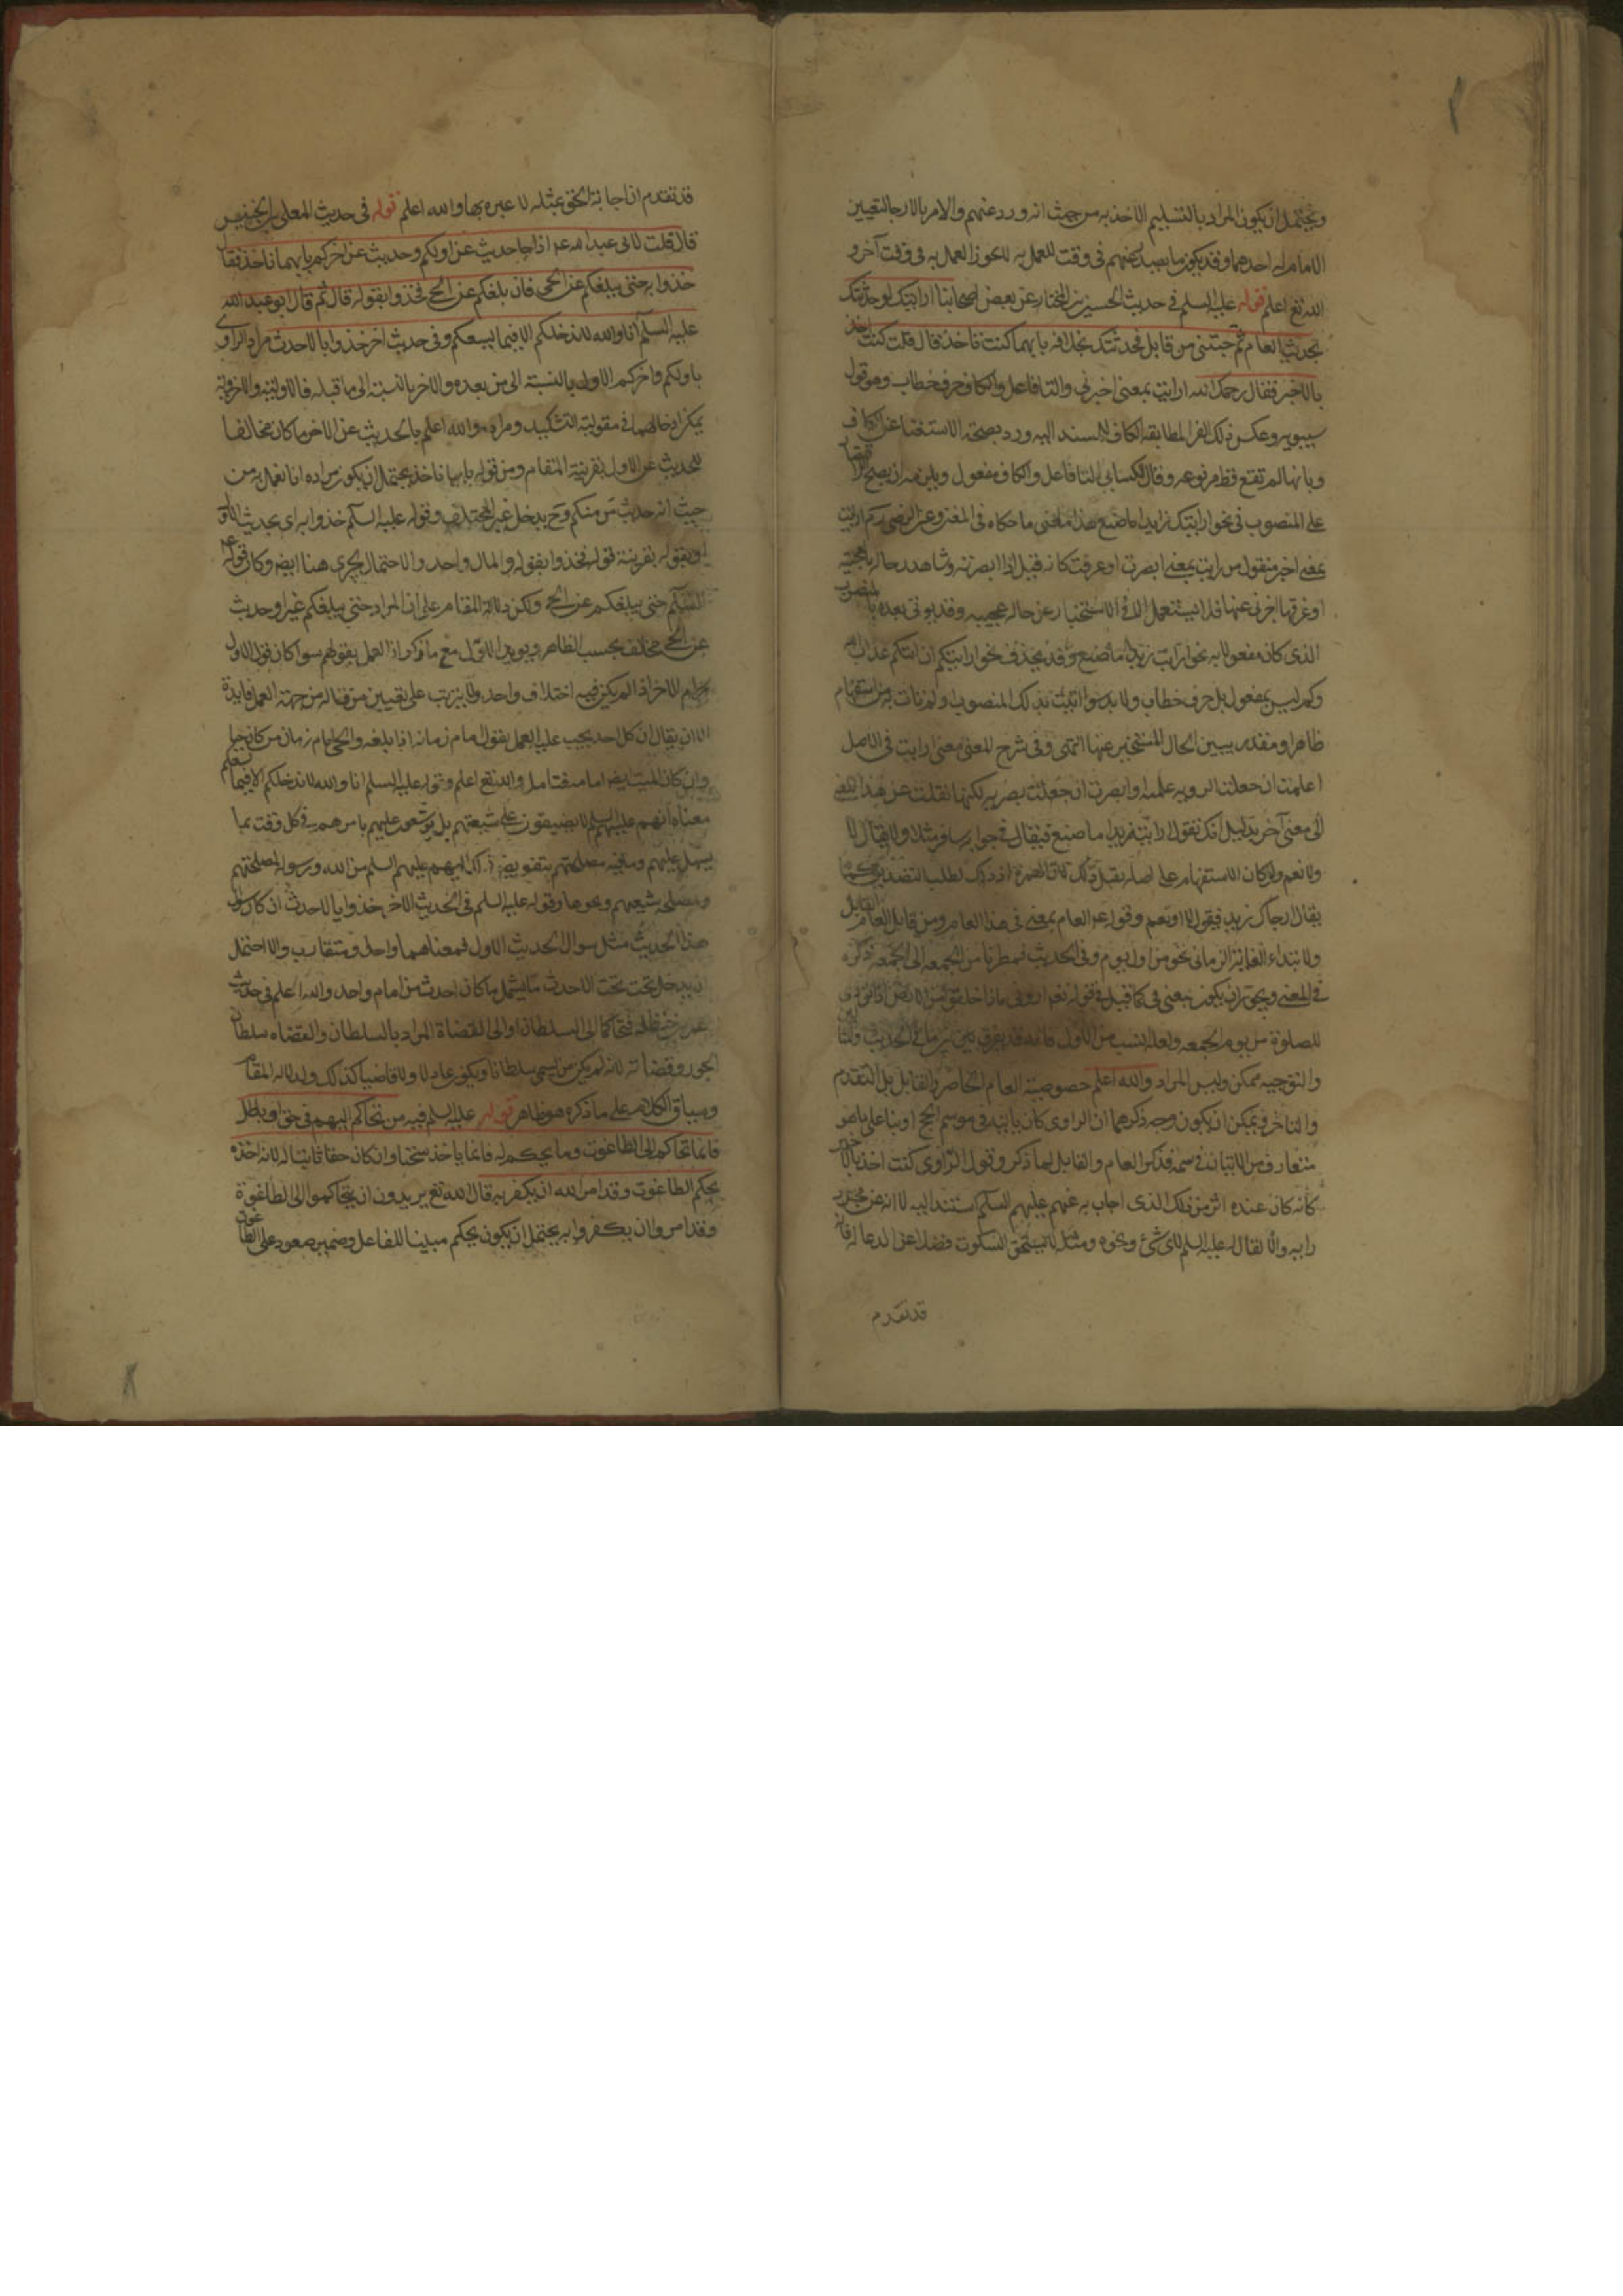 ويحتمل ان يكون المراد بالتسليم الاخذ به من حيث انه ورد عنهم والامر بالارجا لتعيين
الامام له احدهما وقد يكون ما يصدر عنهم في وقت للعمل به لا يجوز العمل به في وقت آخر و
الله تع اعلم قوله عليه السلم في حديث الحسين بن المختار عن بعض اصحابنا ارايتك لو حدثتك
بحديث العام ثم جئتني من قابل فحدثتك بخلافه بايهما كنت تاخذ قال قلت كنت اخذ
بالاخير فقال رحمك الله ارايت بمعنى اخبرني والتا فاعل والكاف حرف خطاب وهو قول
سيبويه وعكس ذلك الفرا لمطابقة الكاف للمسند اليه ورد بصحة الاستغنا عن الكاف
وبانها لم تقع قط مرفوعه وقال الكسائي التا فاعل والكاف مفعول ويلزمه ان يصح الاقتصار
على المنصوب في نحو ارايتك زيدا ما صنع هذا ملخص ما حكاه في المغني وعن الرضي رح ارايت
بمعنى اخبر منقول من رايت بمعنى ابصرت او عرفت كانه قيل اابصرته وشاهدت حاله العجيبة
او عرفتها اخبرني عنها فلا يستعمل الا في الاستخبار عن حاله عجيبه وقد يوتى بعده بالمنصوب
الذي كان مفعولا به نحو ارايت زيدا ما صنع وقد يحذف نحو ارايتكم ان اتيكم عذاب الله
وكم ليس بمفعول بل حرف خطاب ولا بد سوا اتيت بذلك المنصوب او لم تات به من استفهام
ظاهر او مقدر يبين الحال المستخبر عنها انتهى وفي شرح المغني معنى ارايت في الاصل
اعلمت ان جعلتها الرويه علميه او ابصرت ان جعلت بصريه لكنها نقلت عن هذا المعنى
الى معنى آخر بدليل انك تقول ارايت زيدا ما صنع فيقال في جوابه سافر مثلا ولا يقال لا
ولا نعم ولو كان الاستفهام على اصله لقيل ذلك لان الهمزة اذ ذاك لطلب التصديق كما
يقال ارجاك زيد فيقول لا او نعم وقوله عم العام بمعنى في هذا العام ومن قابل العام القابل
ولابتداء الغاية الزماني نحو من اول يوم وفي الحديث فمطرنا من الجمعه الى الجمعه ذكره
في المغني ويجوز ان يكون بمعنى في كما قيل في قوله تعم اروني ماذا خلقوا من الارض اذا نودي
للصلوة من يوم الجمعه
والتوجيه ممكن وليس المراد والله اعلم خصوصية العام الحاضر والقابل بل المتقدم
والتاخر ويمكن ان يكون وجه ذكرهما ان الراوي كان ياتيه في موسم الحج او بنا على ما هو
متعارف من الاتيان في موسمه فذكر العام والقابل لما ذكر وقول الراوي كنت اخذ بالاخير
كانه كان عنده اثر من ذلك الذي اجاب به عنهم عليهم السلم استند اليه لا انه عن مجرد
رايه والا لقال له عليه السلم لاي شئ ونحوه ومثله لا يستحق السكوت فضلا عن الدعا له فانه
قد تقدم
قد تقدم ان اجابة الحق بمثله لا عبره بها والله اعلم قوله في حديث المعلى بن خنيس
قال قلت لابي عبد الله عم اذا جا حديث عن اولكم وحديث عن اخركم بايهما ناخذ فقال
خذوا به حتى يبلغكم عن الحي فان بلغكم عن الحي فخذوا بقوله قال ثم قال ابو عبد الله
عليه السلم انا والله لا ندخلكم الا فيما يسعكم وفي حديث اخر خذوا بالاحدث مراد الراوي
باولكم واخركم الاول بالنسبة الى من بعده والاخر بالنسبة الى ما قبله فالاولية والاخرية
يمكن ادخالهما في مقولية التشكيك ومراده والله اعلم بالحديث عن الاخر ما كان مخالفا
للحديث عن الاول بقرينة المقام ومن قوله بايهما ناخذ يحتمل ان يكون مراده انا نعمل به من
حيث انه حديث من منكم وح يدخل غير المختلف وقوله عليه السلم خذوا به اي بحديث الاول
او بقوله بقرينة قوله فخذوا بقوله والمال واحد والاحتمال يجري هنا ايضا وكان قوله عليه
السلم حتى يبلغكم عن الحي ولكن دلالة المقام على ان المراد حتى يبلغكم غير او حديث
عن الحي مخالف بحسب الظاهر ويويد الاول مع ما ذكر ان العمل بقولهم سوا كان قول الاول
او الاخر اذا لم يكن فيه اختلاف واحد ولا يترتب على تعيين من قاله من جهة العمل فايدة
الا ان يقال ان كل احد يجب عليه العمل بقول امام زمانه اذا بلغه والحي امام زمان من كان حيا
وان كان الميت ايضا امامه فتامل والله تع اعلم وقوله عليه السلم انا والله لا ندخلكم الا فيما يسعكم
معناه انهم عليهم السلم لا يضيقون على شيعتهم بل يوسعون عليهم بامرهم في كل وقت بما
يسهل عليهم وما فيه مصلحتهم بتفويض ذلك اليهم عليهم السلم من الله ورسوله لمصلحتهم
ومصلحة شيعتهم ونحوها وقوله عليه السلم في الحديث الاخر خذوا بالاحدث ان كان سوال
هذا الحديث مثل سوال الحديث الاول فمعناهما واحد او متقارب والا احتمل
ان يدخل تحت الاحدث ما يشمل ما كان احدث من امام واحد والله اعلم في حديث
عمر بن حنظله فتحاكما الى السلطان او الى القضاة المراد بالسلطان والقضاه سلطان
الجور وقضاته لانه لم يكن من يسمى سلطانا ويكون عادلا ولا قاضيا كذلك ولدلالة المقام
وسياق الكلام على ما ذكره هو ظاهر قوله عليه السلم فيه من تحاكم اليهم في حق او باطل
فانما تحاكم الى الطاغوت وما يحكم له فانما ياخذ سحتا وان كان حقا ثابتا له لانه اخذه
بحكم الطاغوت وقد امر الله ان يكفر به قال الله تع يريدون ان يتحاكموا الى الطاغوت
وقد امروا ان يكفروا به يحتمل ان يكون يحكم مبنيا للفاعل وضمير يعود على الطاغوت